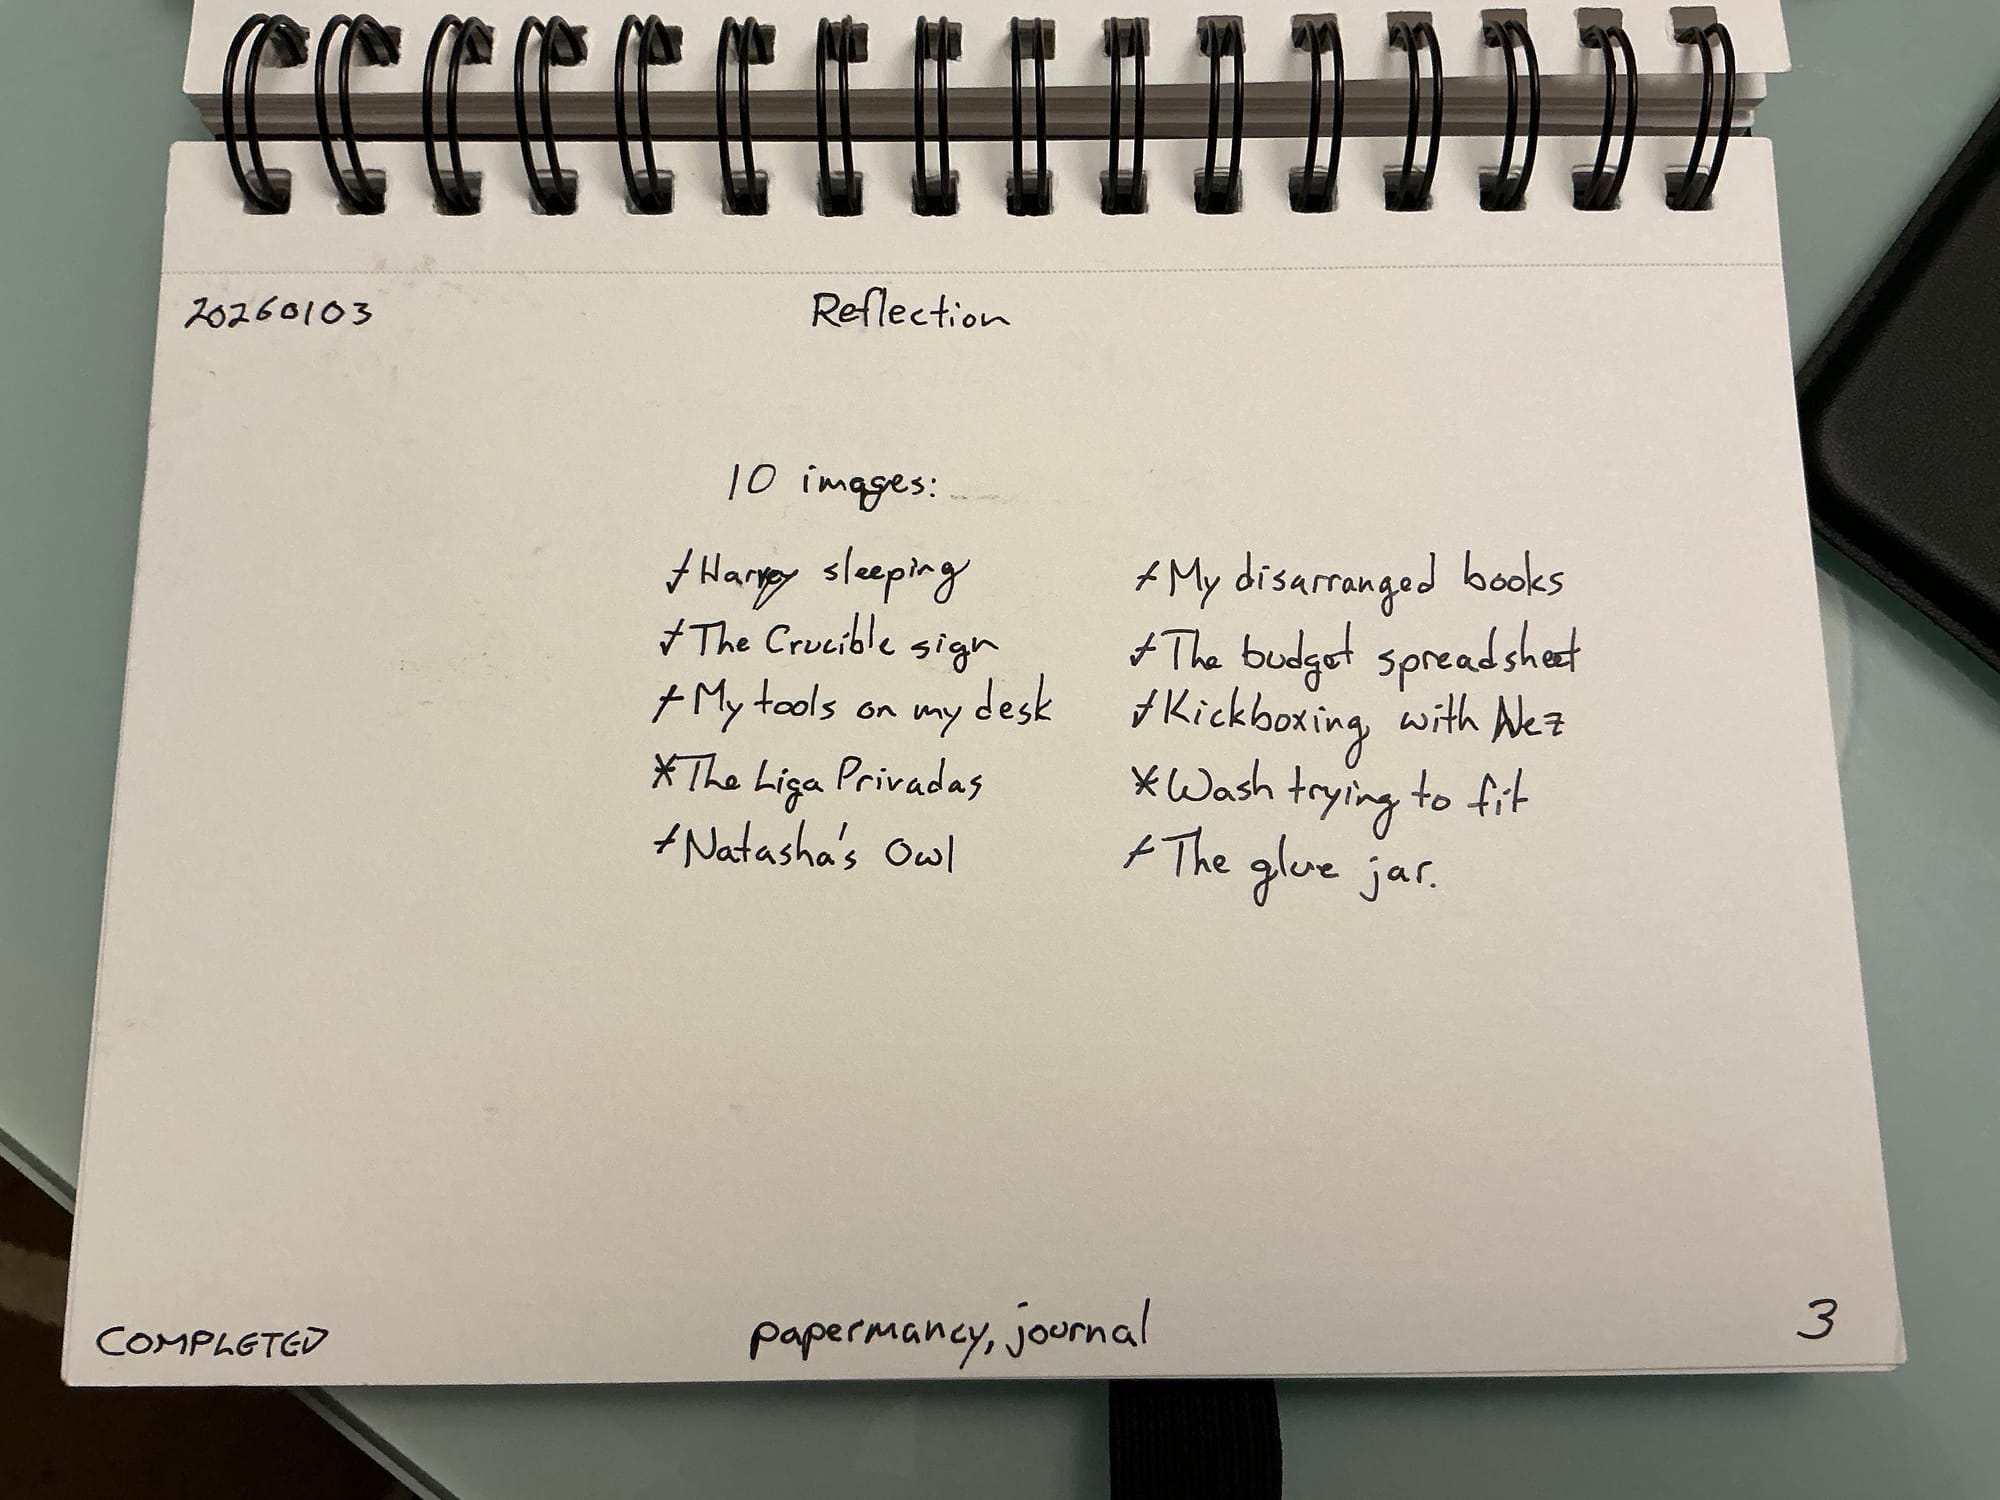 20260103
Reflection
10 images:
Harvey sleeping
The Crucible sign
My tools on my desk
The Liga Privadas
Natasha's Owl
My disarranged books
The budget spreadsheet
Kickboxing with Nez
Wash trying to fit
The glue jar.
COMPLETED
papermancy, journal
3